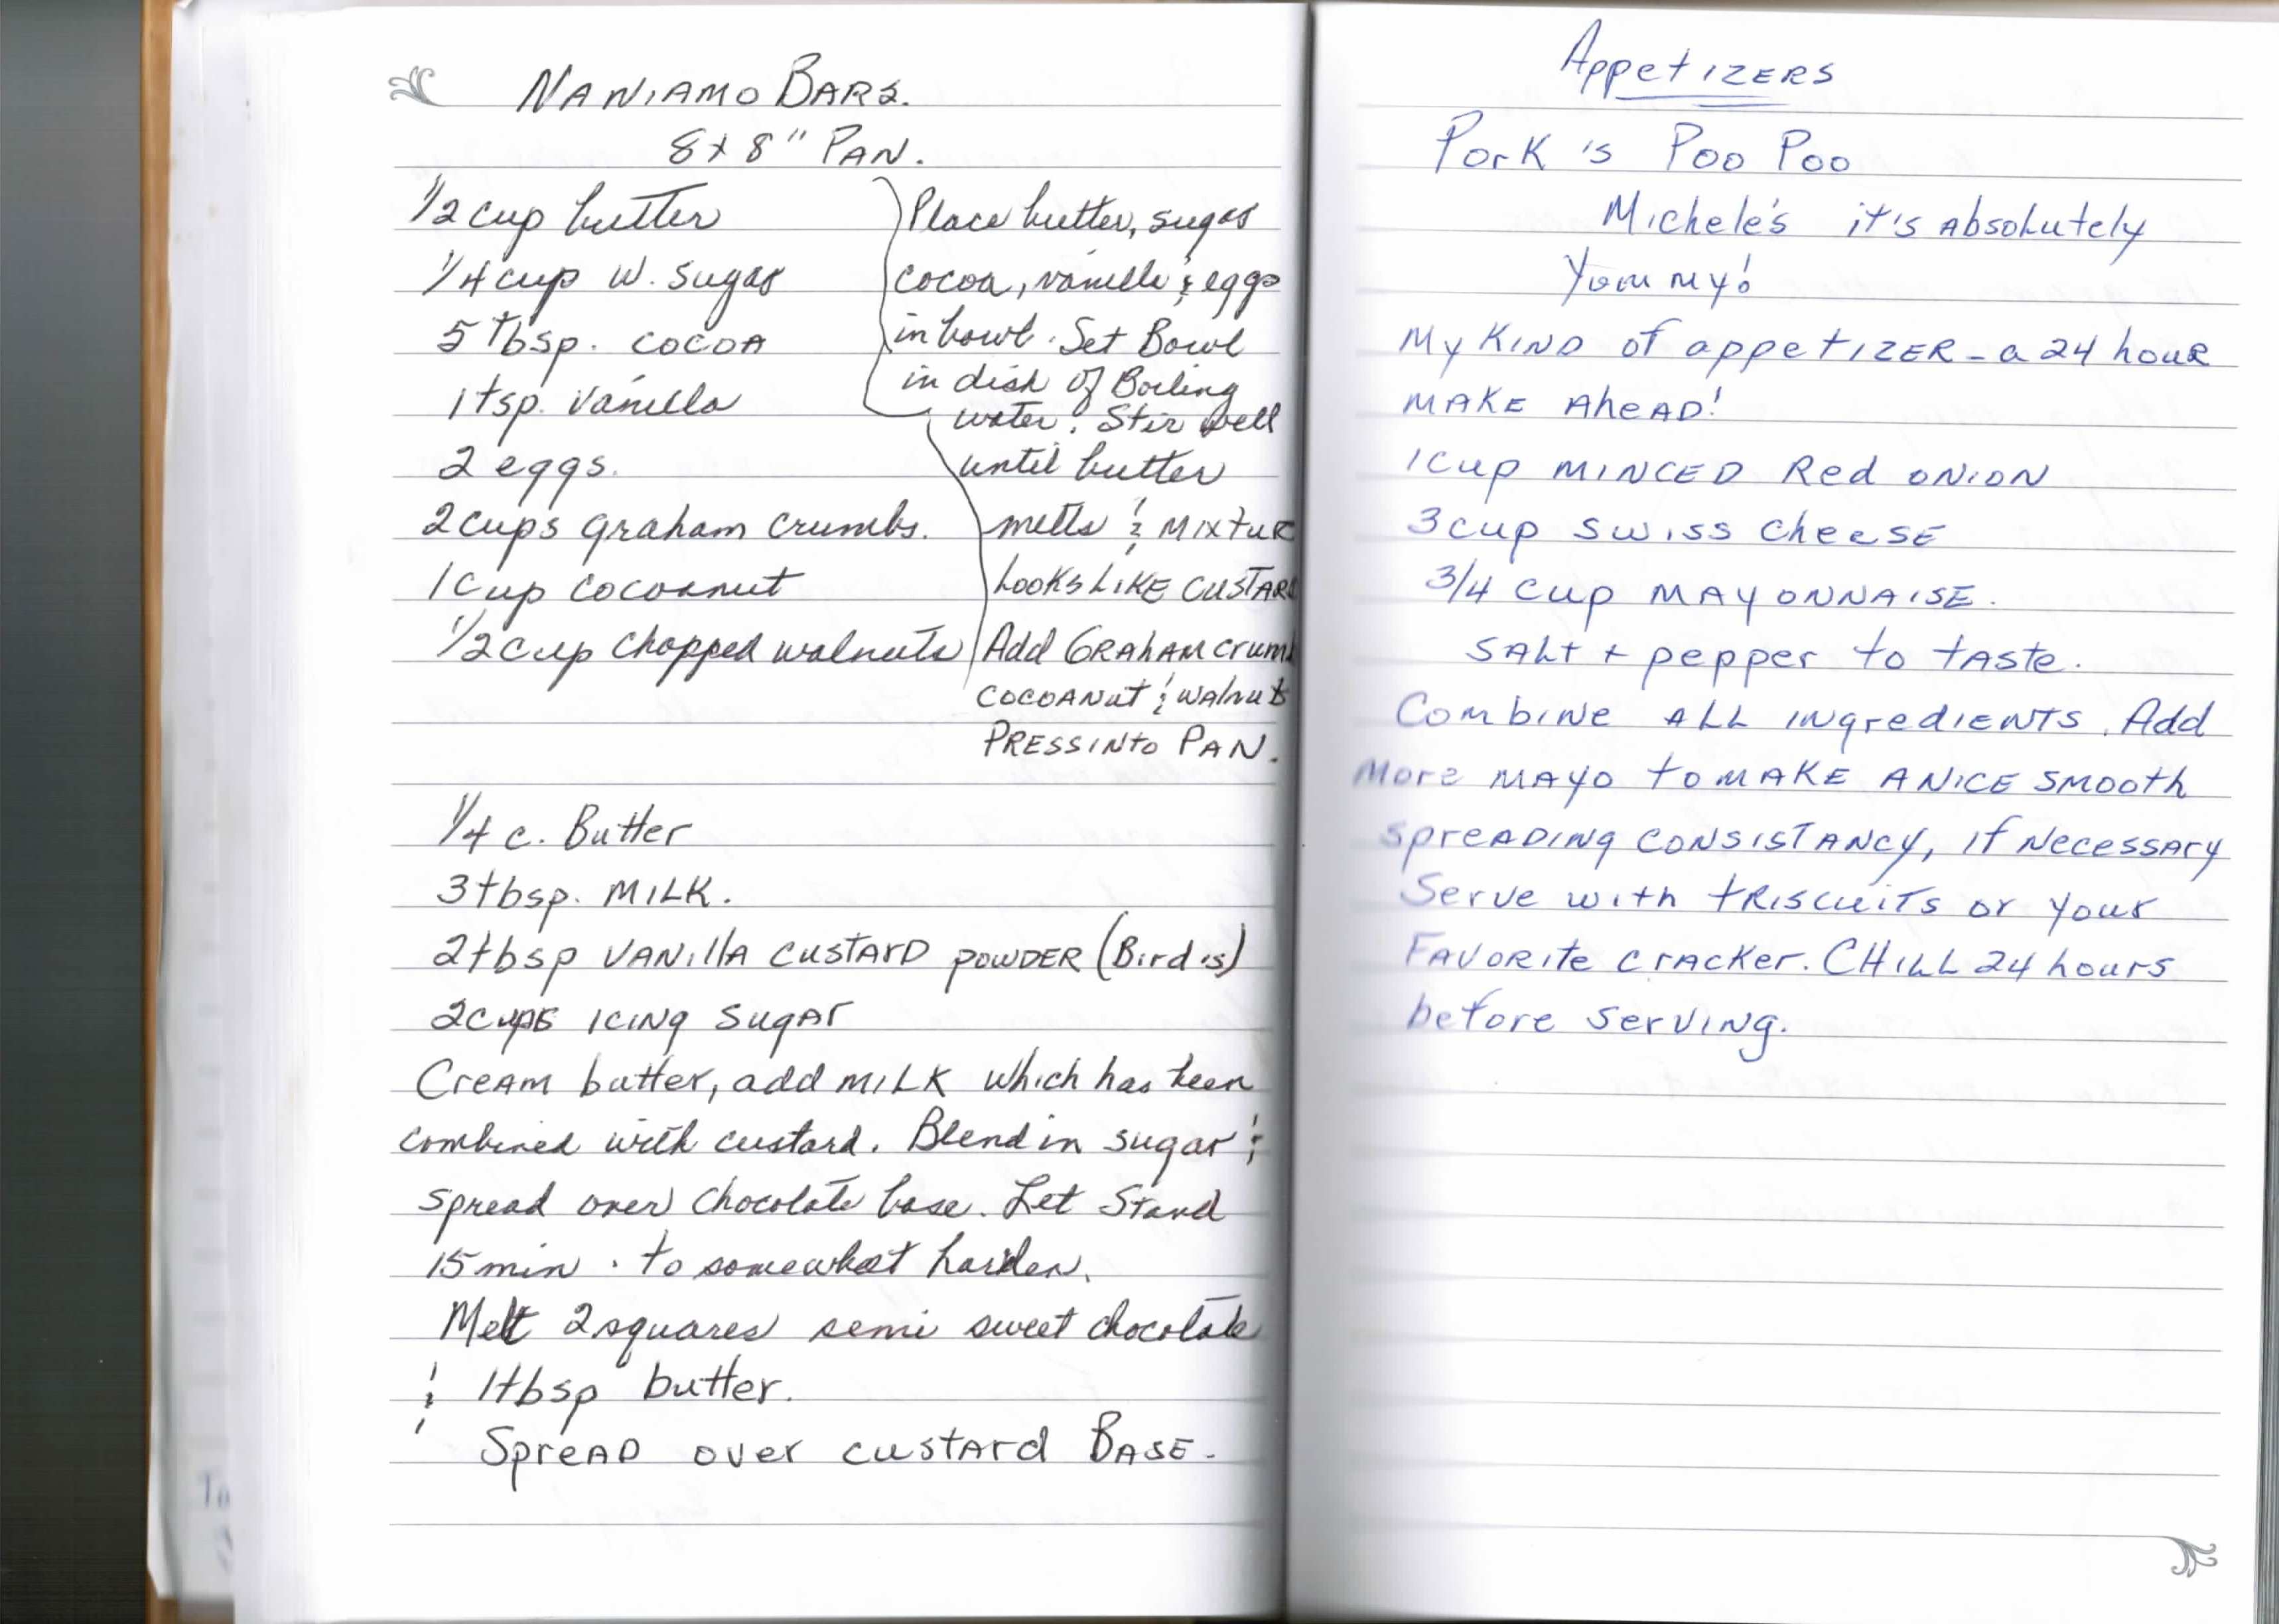 NANIAMO BARS.
8x8" PAN.
1/2 cup butter
1/4 cup W. Sugar
5 tbsp. COCOA
1 tsp. Vanilla
2 eggs.
2 cups graham crumbs.
1 cup cocoanut
1/2 cup chopped walnuts
Place butter, sugar
cocoa, vanilla & eggs
in bowl. Set Bowl
in dish of Boiling
water. Stir well
until butter
melts & MIXTUR
LOOKS LIKE CUSTARD
Add GRAHAM crumb
COCOANUT & WALNUTS
PRESS INTO PAN.
1/4 c. Butter
3 tbsp. MILK.
2 tbsp VANILLA CUSTARD POWDER (Bird's)
2 cups ICING SUGAR
CREAM butter, add MILK which has been
combined with custard. Blend in sugar &
spread over chocolate base. Let Stand
15 min. to somewhat harden.
Melt 2 squares semi sweet chocolate
& 1 tbsp butter.
SPREAD over custard BASE.
AppetIZERS
Pork's Poo Poo
Michele's it's Absolutely
Yummy!
My KIND of appetIZER - a 24 hour
MAKE AheAD!
1 cup MINCED Red ONION
3 cup SWISS CheeSE
3/4 cup MAYONNAISE.
SALT + pepper to tASte.
Combine ALL INgredIENTS. Add
More MAYO to MAKE A NICE SMOOth
SpreADINg CONSISTANCY, If NecessAry
Serve with tRISCUITS or your
FAVORIte CrACker. CHILL 24 hours
before SerVINg.